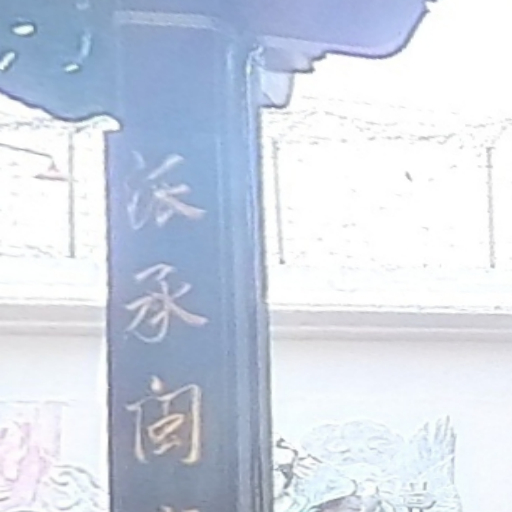 派承闽